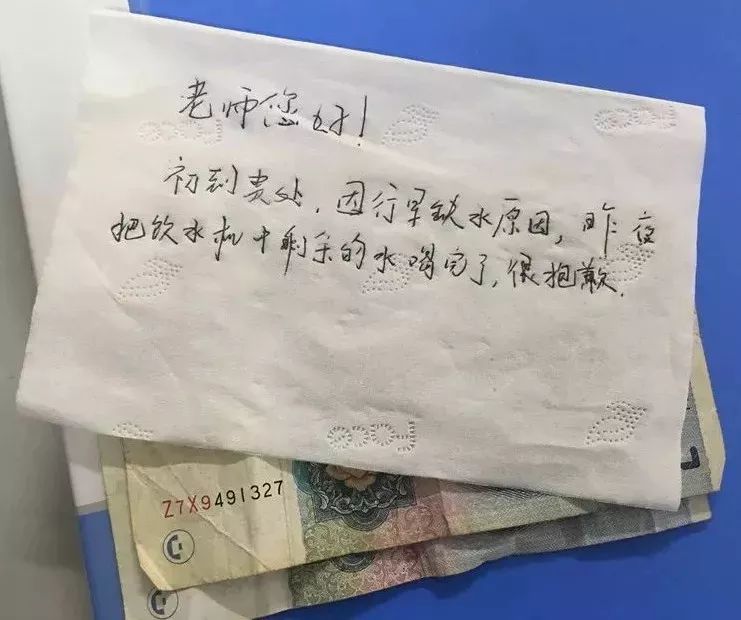 老师您好！
初到贵处，因行军缺水原因，昨夜
把饮水机中剩余的水喝完了，很抱歉.
Z7X9491327